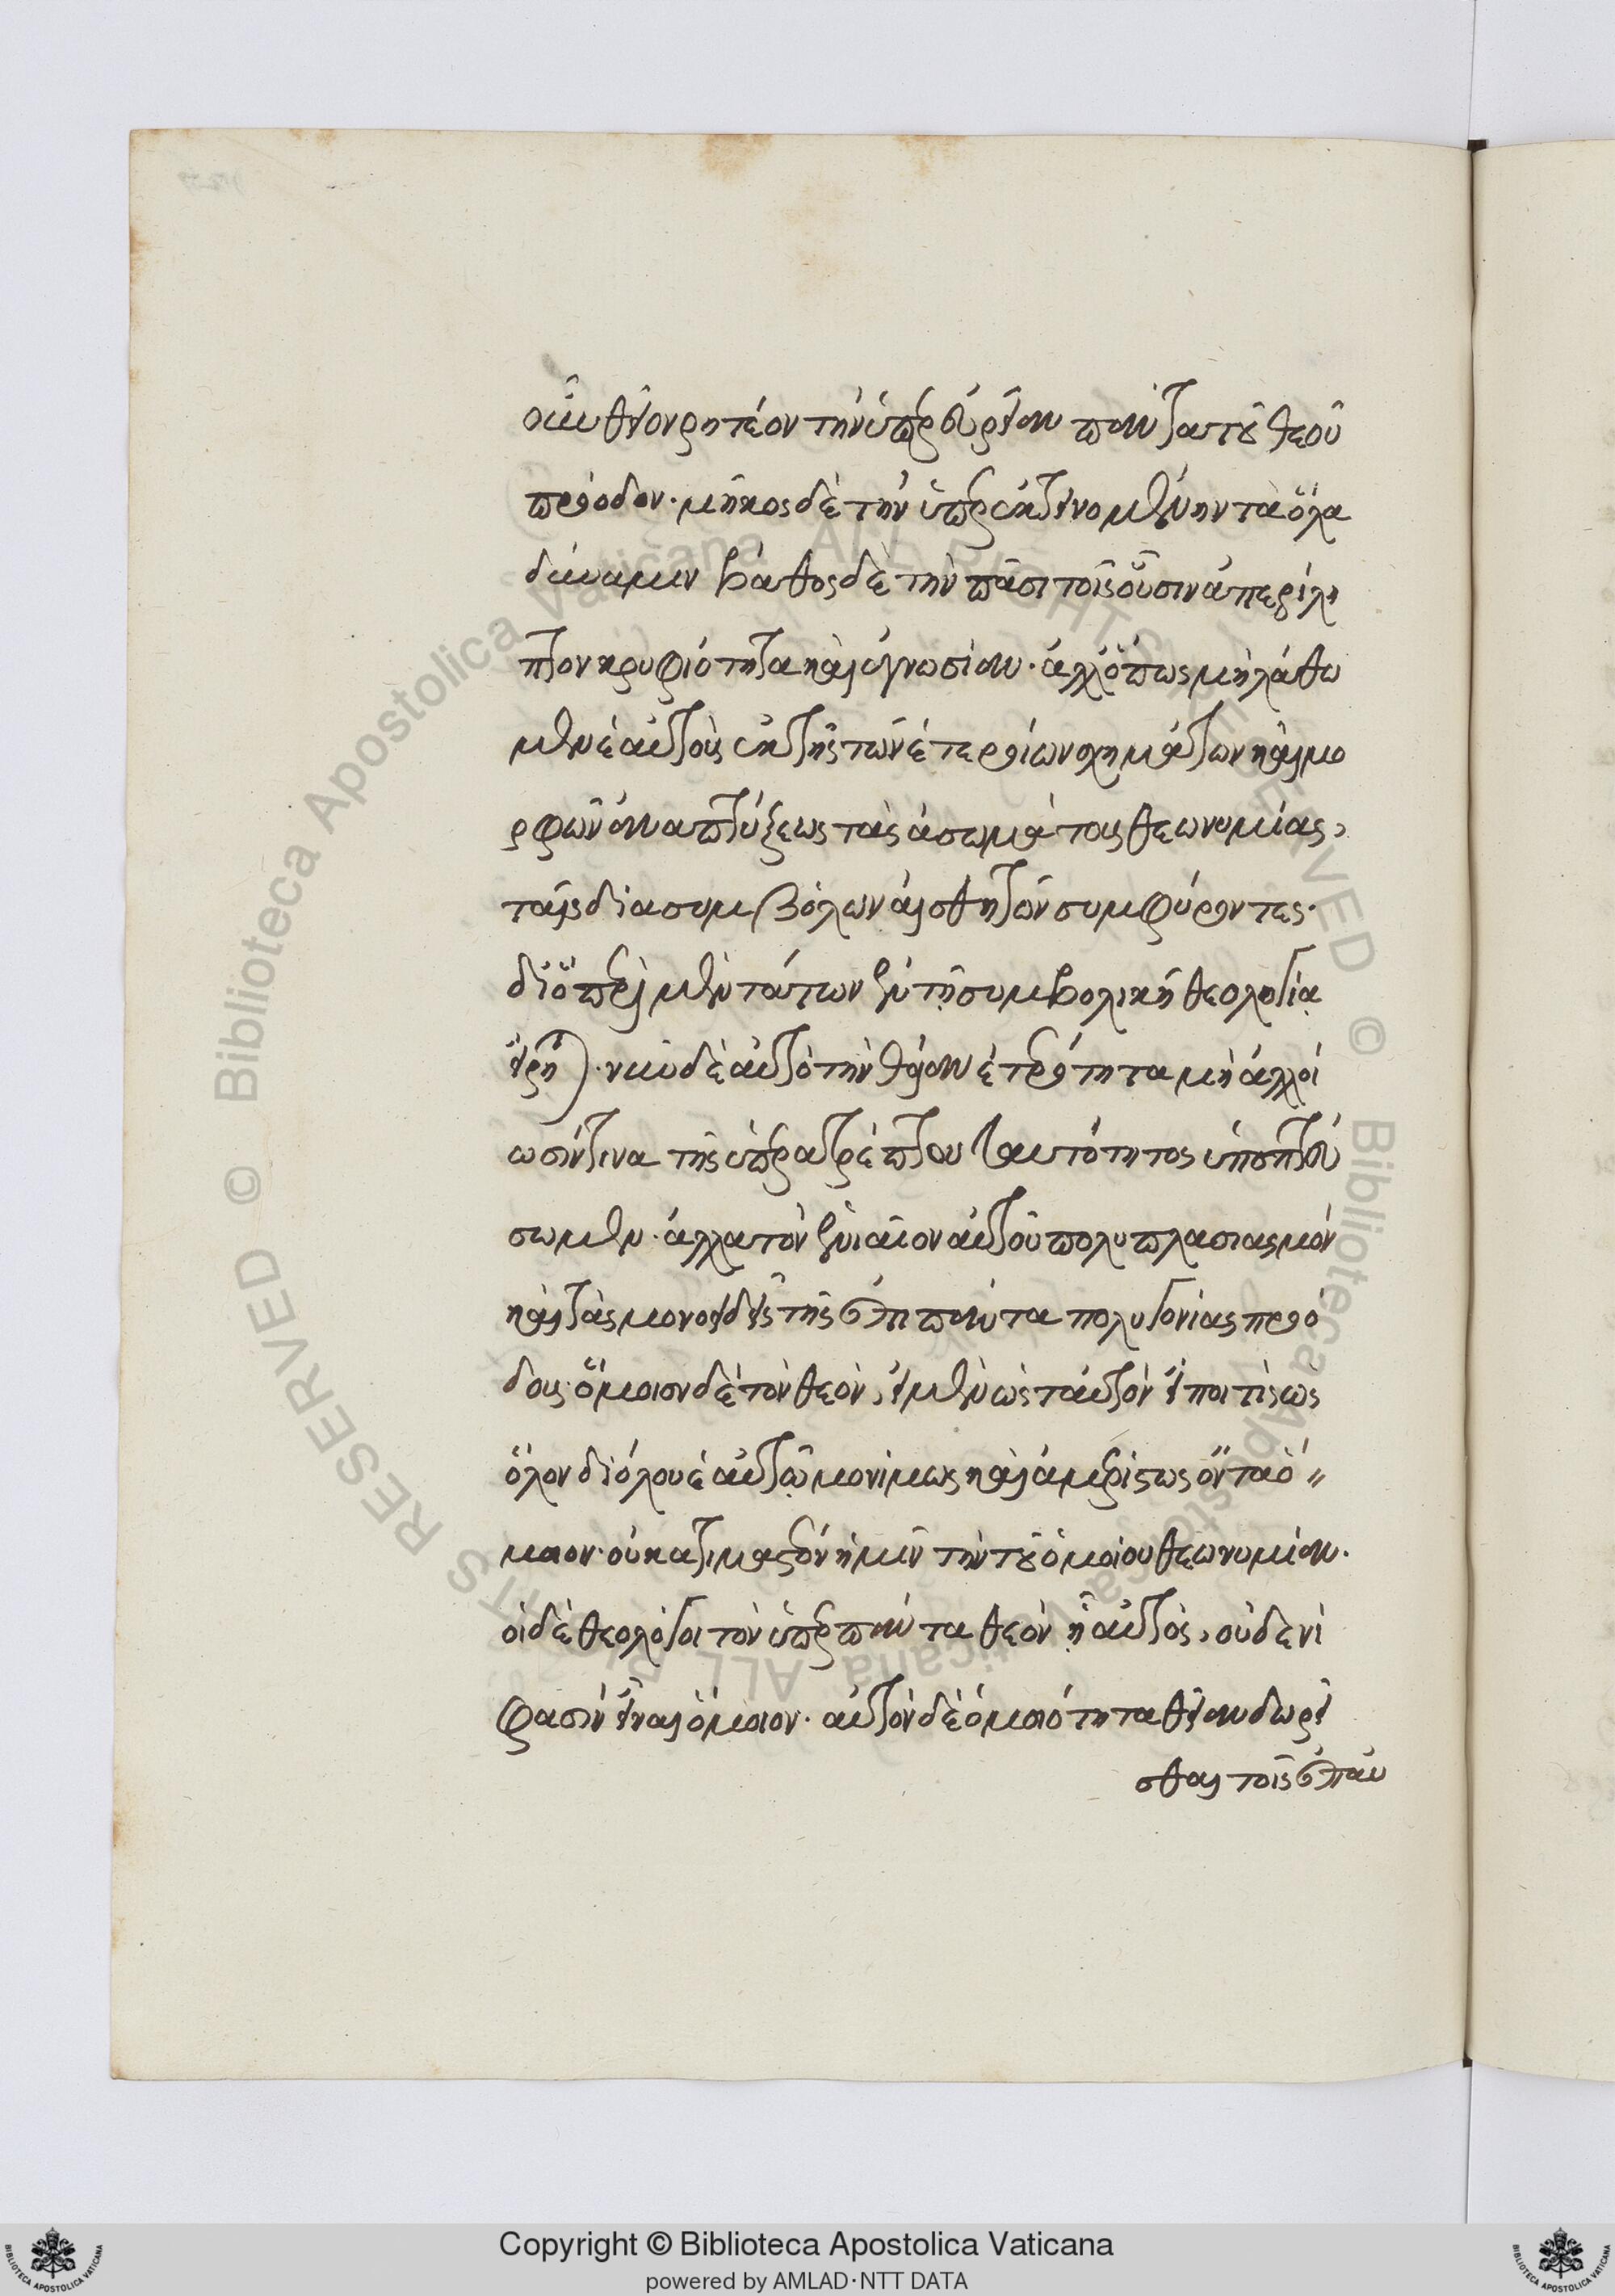 οῦν θεῖον ρητέον τὴν ὑπὲρ εὐρεῖαν πάντα τοῦ θεοῦ
πρόοδον· μῆκος δὲ τὴν ὑπὲρ ἐκτεινομένην τὰ ὅλα
δύναμιν βάθος δὲ τὴν πᾶσι τοῖς οὖσιν ἀπερίλη
πτον κρυφιότητα καὶ ἀγνωσίαν· ἀλλ' ὅπως μὴ λάθω
μεν ἑαυτοὺς ἐκ τῆς τῶν ἑτεροίων σχημάτων καὶ μο
ρφῶν ἀναπτύξεως τὰς ἀσωμάτους θεωνυμίας,
ταῖς διὰ συμβόλων αἰσθητῶν συμφύροντες·
διὸ περὶ μὲν τούτων ἐν τῇ συμβολικῇ θεολογίᾳ
εἴρηται· νῦν δὲ αὐτὸ τὴν θείαν ἑτερότητα μὴ ἀλλοί
ωσίν τινα τῆς ὑπερατρέπτου ταυτότητος ὑποπτεύ
σωμεν· ἀλλὰ τὸν ἑνιαῖον αὐτοῦ πολυπλασιασμὸν
καὶ τὰς μονοειδεῖς τῆς ἐπὶ πάντα πολυγονίας προό
δους· ὅμοιον δὲ τὸν θεὸν, εἰ μὲν ὡς ταυτὸν εἴποι τὶς ὡς
ὅλον διόλου ἑαυτῷ μονίμως καὶ ἀμερίστως ὄντα ὅ
μοιον· οὐκ ἀτιμαστέον ἡμῖν τὴν τοῦ ὁμοίου θεωνυμίαν.
οἱ δὲ θεολόγοι τὸν ὑπὲρ πάντα θεὸν ᾗ αὐτὸς, οὐδενὶ
φασὶν εἶναι ὅμοιον· αὐτὸν δὲ ὁμοιότητα θείαν δωρεῖ
σθαι τοῖς ἐπ' αὐ
Copyright © Biblioteca Apostolica Vaticana
powered by AMLAD·NTT DATA